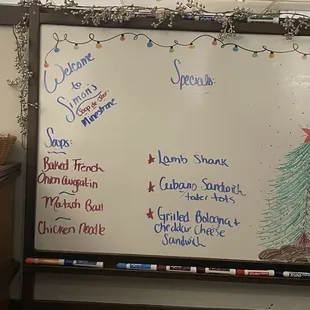 Welcome
to
Simons
Soup de Jour:
Minestrone
Soups:
Baked French
Onion augratin
~
Matzoh Ball
~
Chicken Noodle
Specials:
★ Lamb Shank
★ Cubano Sandwich
tater tots
★ Grilled Bologna +
cheddar Cheese
Sandwich